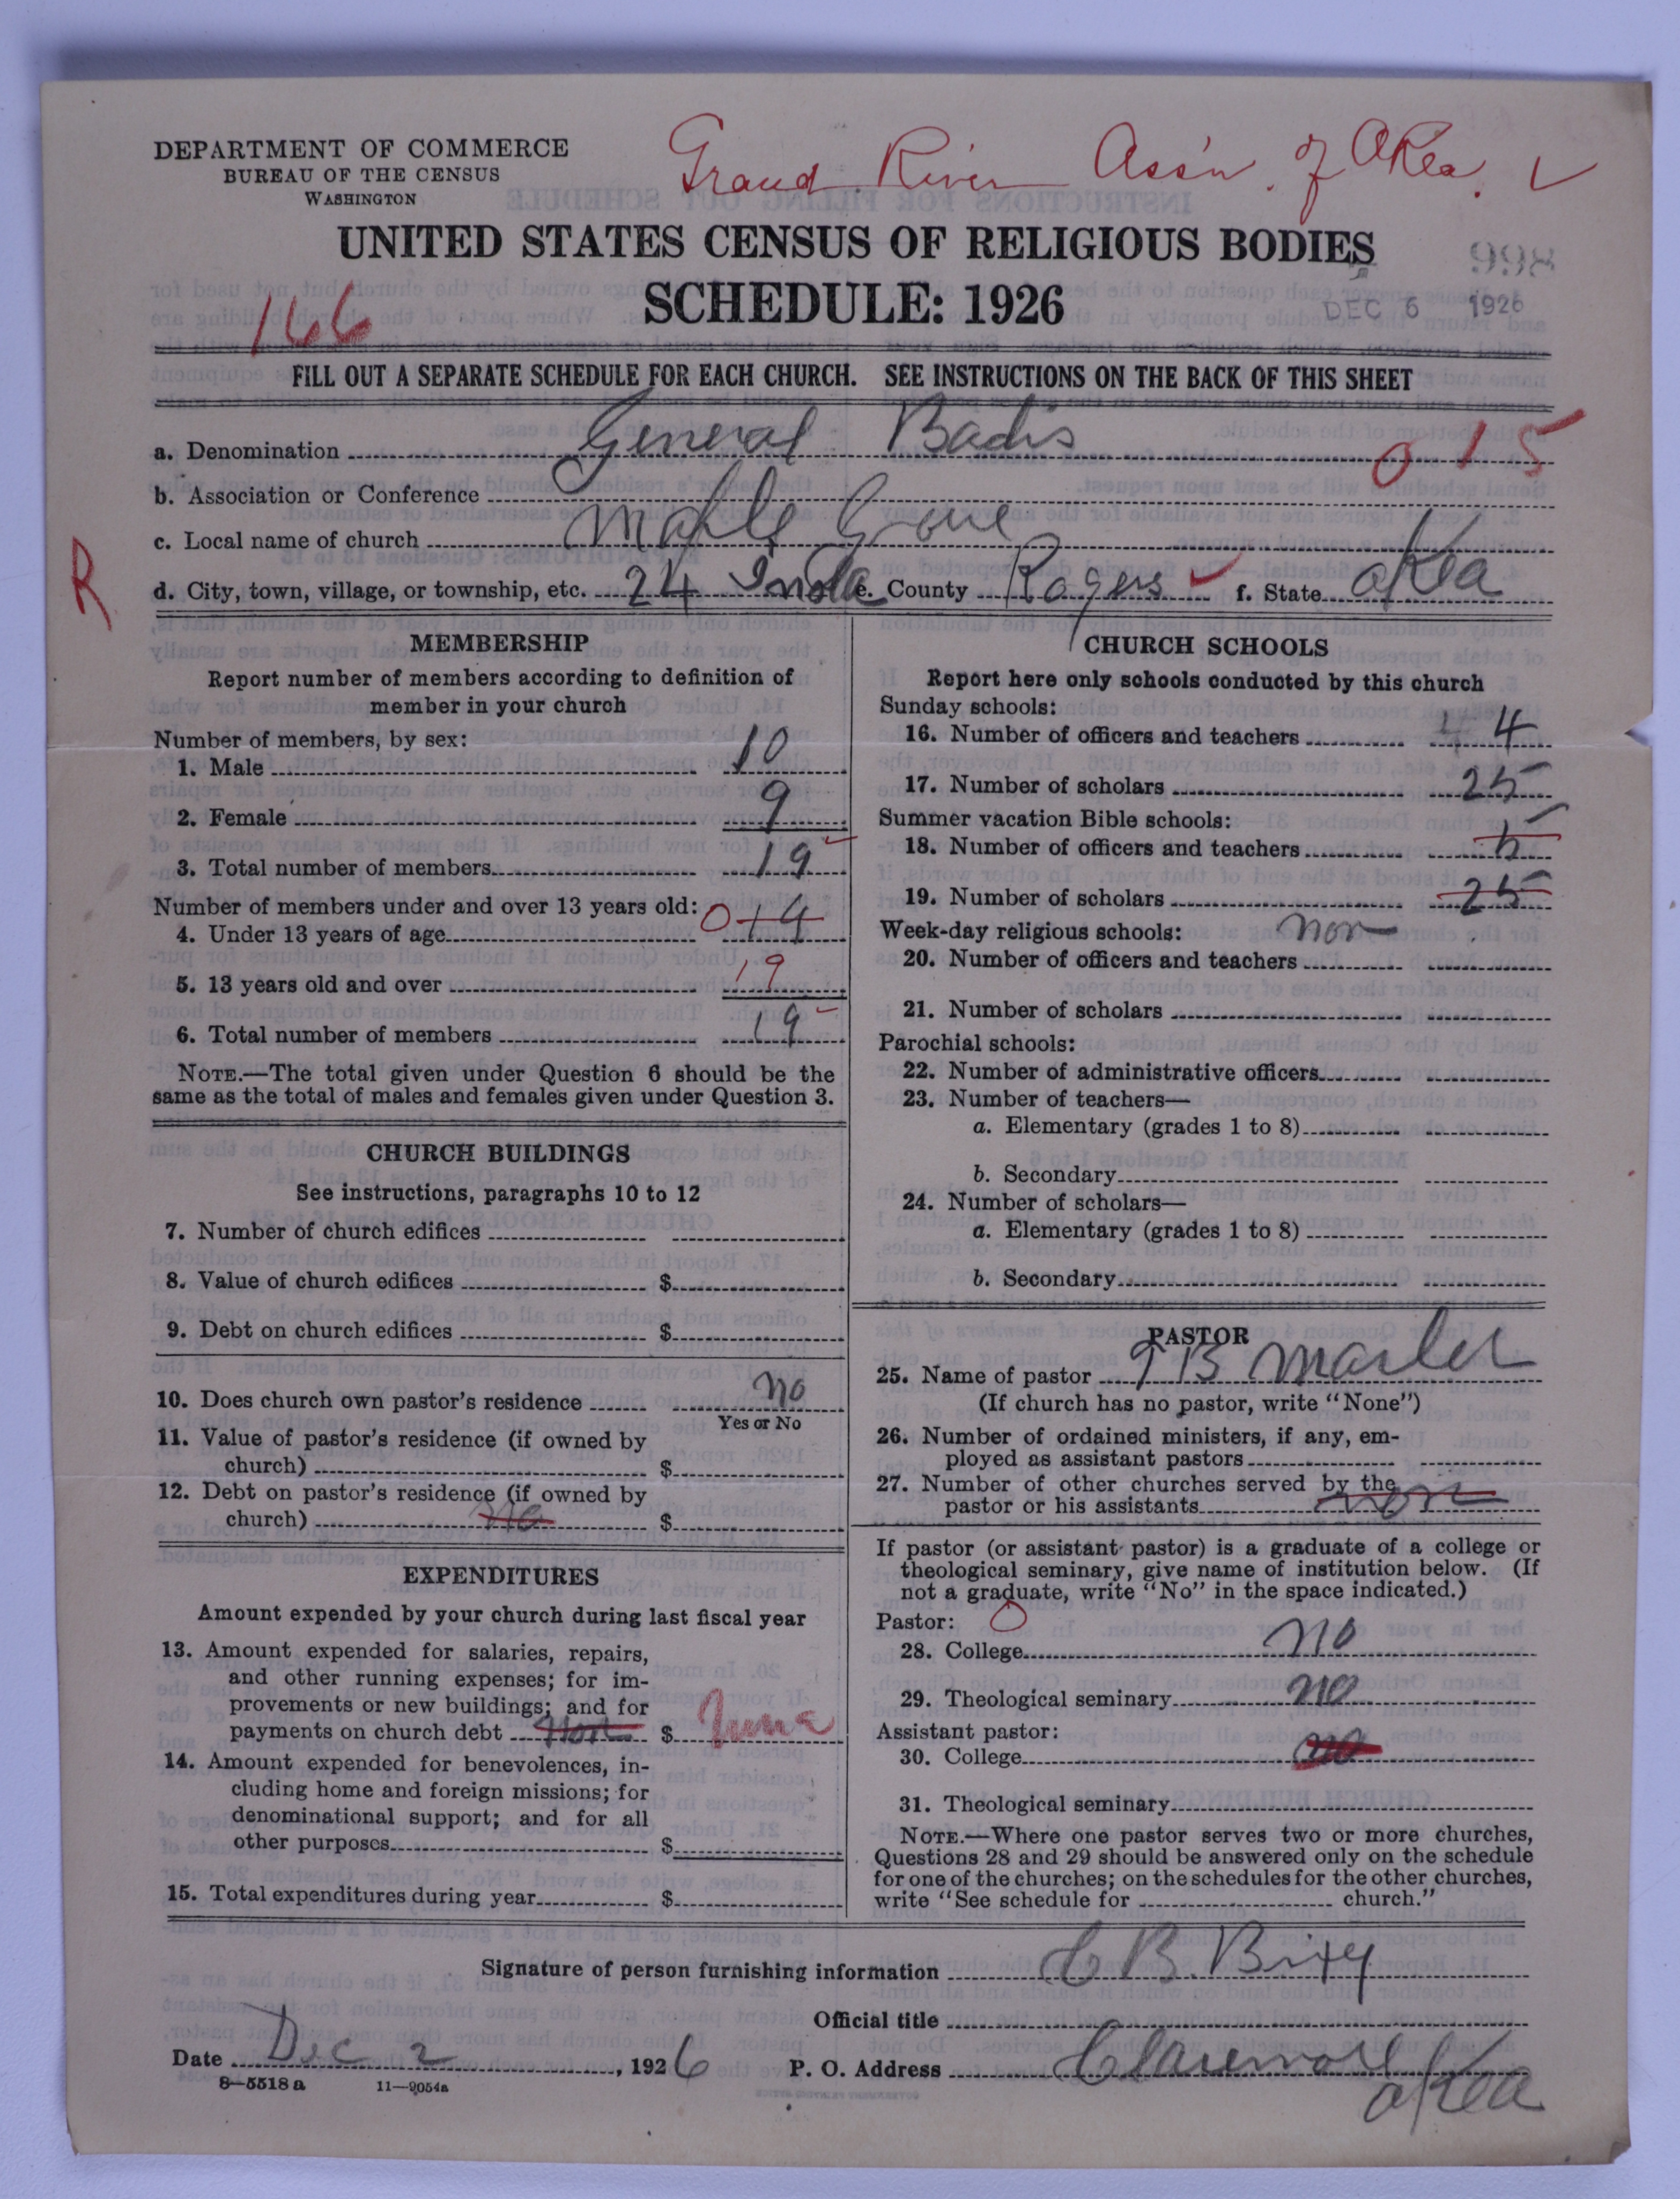 DEPARTMENT OF COMMERCE
BUREAU OF THE CENSUS
WASHINGTON
Grand River Ass'n. of Okla.
UNITED STATES CENSUS OF RELIGIOUS BODIES
SCHEDULE: 1926
166
DEC 6 1926
FILL OUT A SEPARATE SCHEDULE FOR EACH CHURCH. SEE INSTRUCTIONS ON THE BACK OF THIS SHEET
a. Denomination General Badis 015
b. Association or Conference
c. Local name of church Maple Grove
R
d. City, town, village, or township, etc. 24 Inola e. County Rogers f. State Okla
MEMBERSHIP
Report number of members according to definition of
member in your church
Number of members, by sex:
1. Male 10
2. Female 9
3. Total number of members 19
Number of members under and over 13 years old:
4. Under 13 years of age 0 14
5. 13 years old and over 19
6. Total number of members 19
NOTE.—The total given under Question 6 should be the
same as the total of males and females given under Question 3.
CHURCH BUILDINGS
See instructions, paragraphs 10 to 12
7. Number of church edifices
8. Value of church edifices $
9. Debt on church edifices $
10. Does church own pastor's residence no
Yes or No
11. Value of pastor's residence (if owned by
church) $
12. Debt on pastor's residence (if owned by
church) no $
EXPENDITURES
Amount expended by your church during last fiscal year
13. Amount expended for salaries, repairs,
and other running expenses; for im-
provements or new buildings; and for
payments on church debt non $
14. Amount expended for benevolences, in-
cluding home and foreign missions; for
denominational support; and for all
other purposes $
15. Total expenditures during year $
CHURCH SCHOOLS
Report here only schools conducted by this church
Sunday schools:
16. Number of officers and teachers 4 4
17. Number of scholars 25
Summer vacation Bible schools:
18. Number of officers and teachers 5
19. Number of scholars 25
Week-day religious schools: non
20. Number of officers and teachers
21. Number of scholars
Parochial schools:
22. Number of administrative officers
23. Number of teachers—
a. Elementary (grades 1 to 8)
b. Secondary
24. Number of scholars—
a. Elementary (grades 1 to 8)
b. Secondary
PASTOR
25. Name of pastor T B Marler
(If church has no pastor, write "None")
26. Number of ordained ministers, if any, em-
ployed as assistant pastors
27. Number of other churches served by the
pastor or his assistants non
If pastor (or assistant pastor) is a graduate of a college or
theological seminary, give name of institution below. (If
not a graduate, write "No" in the space indicated.)
Pastor: 0
28. College no
29. Theological seminary no
Assistant pastor:
30. College no
31. Theological seminary
NOTE.—Where one pastor serves two or more churches,
Questions 28 and 29 should be answered only on the schedule
for one of the churches; on the schedules for the other churches,
write "See schedule for church."
Signature of person furnishing information C B. Brixy
Official title
Date Dec 2, 1926 P. O. Address Claremore
Okla
8—5518 a 11—9054a